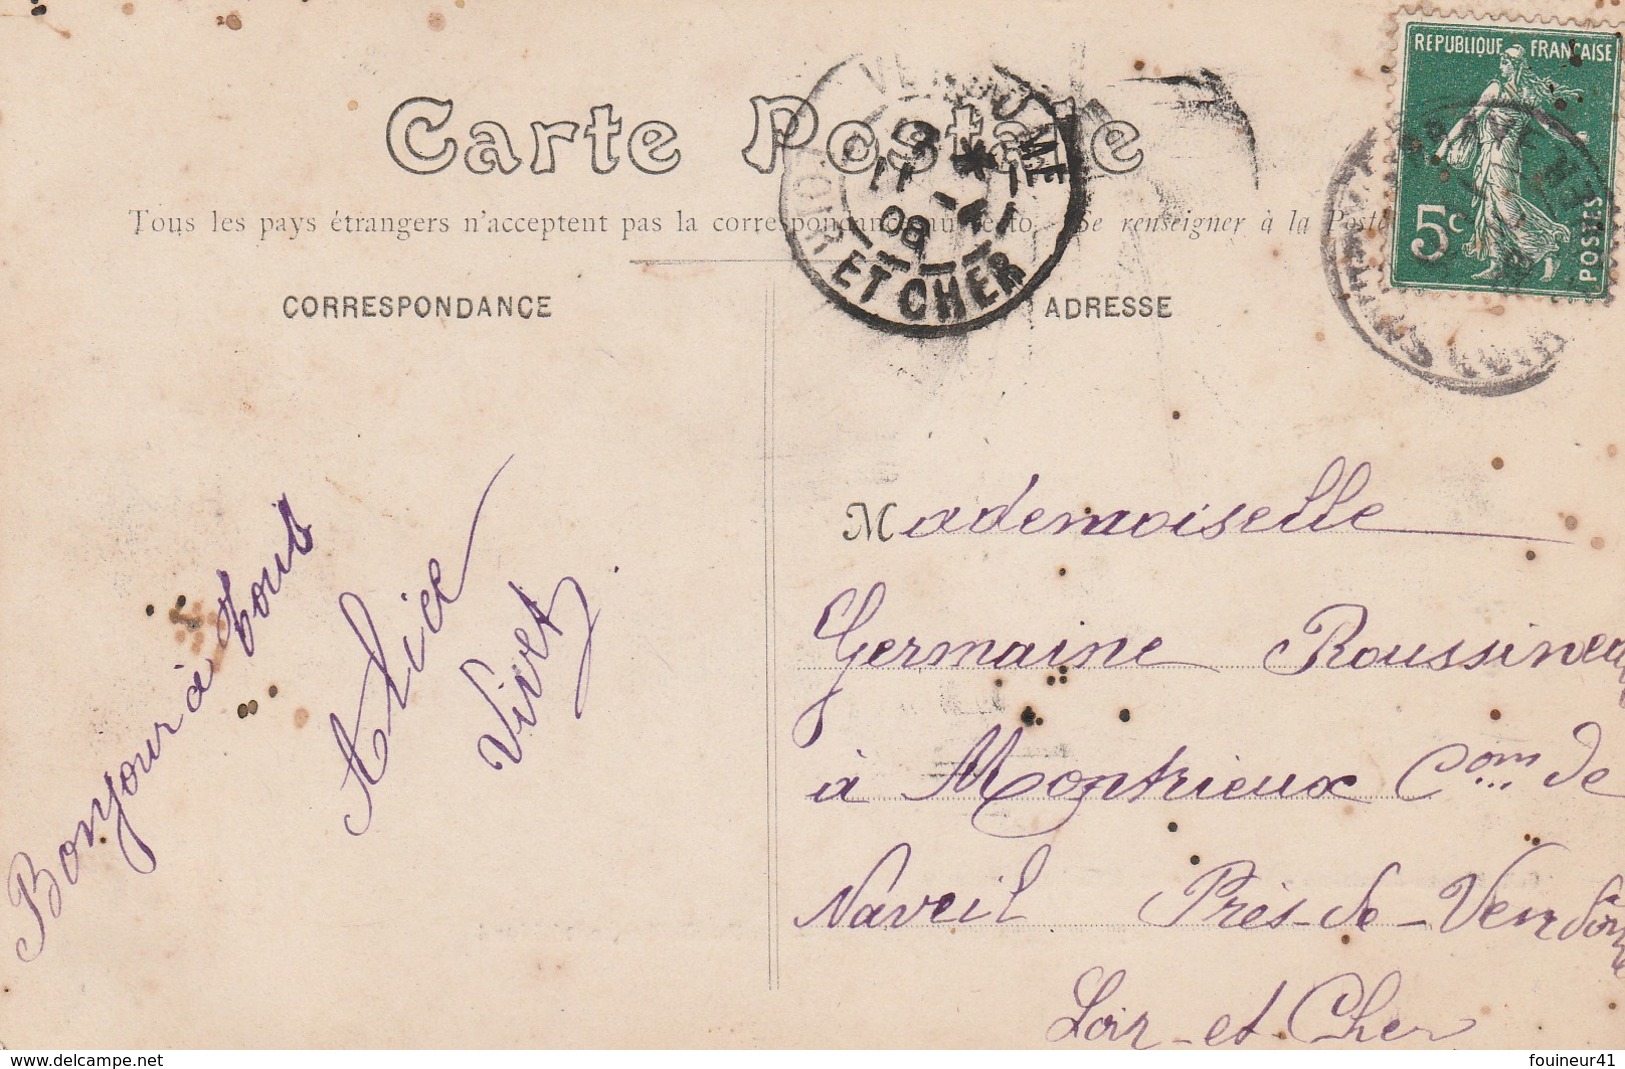 REPUBLIQUE FRANÇAISE
5c
POSTES
Carte Postale
VENDOME
11 - 1
09
LOIR ET CHER
Tous les pays étrangers n'acceptent pas la correspondance au recto. Se renseigner à la Poste
CORRESPONDANCE
ADRESSE
Bonjour à tous
Alice
Vivet
Mademoiselle
Germaine Roussineau
à Montrieux Com de
Naveil Près-de-Vendôme
Loir-et-Cher
www.delcampe.net
fouineur41